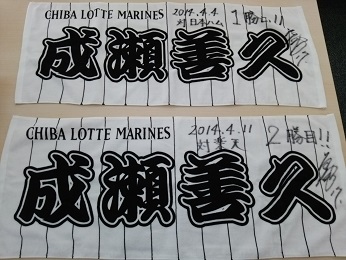 CHIBA LOTTE MARINES
2014.4.4
対日本ハム
1勝目!!
成瀬善久
CHIBA LOTTE MARINES
2014.4.11
対楽天
2勝目!!
成瀬善久